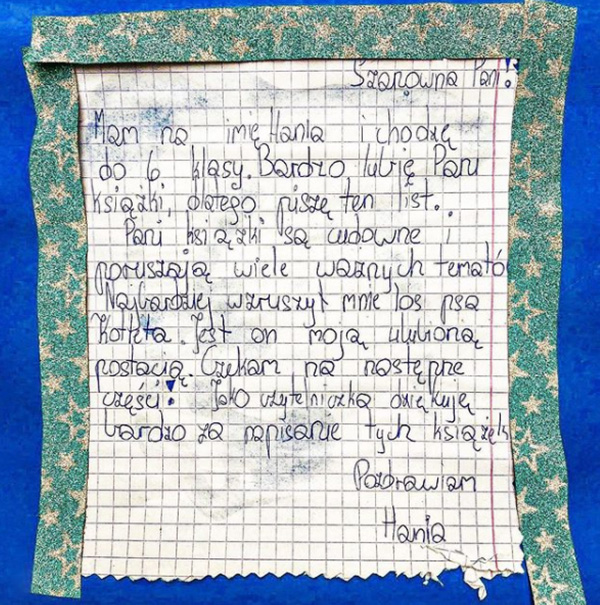 Szanowna Pani!
Mam na imię Hania i chodzę
do 6 klasy. Bardzo lubię Pani
książki, dlatego piszę ten list.
Pani książki są cudowne i
poruszają wiele ważnych temató
Najbardziej wzruszył mnie los psa
Kotleta. Jest on moją ulubioną
postacią. Czekam na następne
części! Jako czytelniczka dziękuję
bardzo za napisanie tych książek
Pozdrawiam
Hania